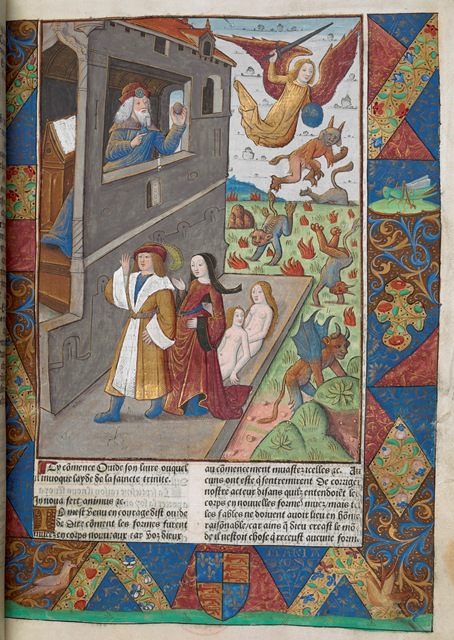 Cy cõmence Ouide son liure ouquel
il inuoque layde de la saincte trinite.
In noua fert animus &c.
Il mest venu en courage dist ouide
de dire cõment les formes furent
muees en corps nouueaux car voz dieux
au cõmencement muastez icelles &c. Au
cuns ont este q̃ sentremirent de corriger
nostre acteur disans quilz entendoiẽt les
corps en nouuelles formes muez mais telz
les fables ne doiuent auoir lieu en hõme
raisonable/car ainsi q̃ dieu creast le mõ
de il nestoit chose q̃ receust aucune forme